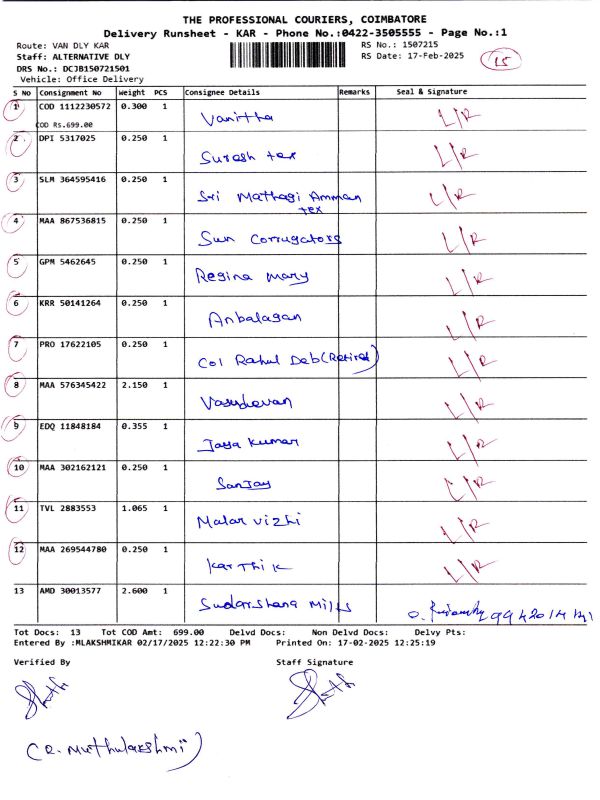 THE PROFESSIONAL COURIERS, COIMBATORE
Delivery Runsheet - KAR - Phone No.:0422-3505555 - Page No.:1
Route: VAN DLY KAR
RS No.: 1507215
Staff: ALTERNATIVE DLY
RS Date: 17-Feb-2025
15
DRS No.: DCJB150721501
Vehicle: Office Delivery
S No Consignment No Weight PCS Consignee Details Remarks Seal & Signature
1 COD 1112230572 0.300 1 Vanitha L/R
COD Rs.699.00
2 DPI 5317025 0.250 1 Suresh tex L/R
3 SLM 364595416 0.250 1 Sri Mathagi Amman L/R
tex
4 MAA 867536815 0.250 1 Sun Corrugators L/R
5 GPM 5462645 0.250 1 Regina mary L/R
6 KRR 50141264 0.250 1 Anbalagan L/R
7 PRO 17622105 0.250 1 Col Rahul Deb (Retired) L/R
8 MAA 576345422 2.150 1 Vasudevan L/R
9 EDQ 11848184 0.355 1 Jaya Kumar L/R
10 MAA 302162121 0.250 1 Sanjay L/R
11 TVL 2883553 1.065 1 Malar vizhi L/R
12 MAA 269544780 0.250 1 Karthik L/R
13 AMD 30013577 2.600 1 Sudarshana Mills
Tot Docs: 13 Tot COD Amt: 699.00 Delvd Docs: Non Delvd Docs: Delvy Pts:
Entered By :MLAKSHMIKAR 02/17/2025 12:22:30 PM Printed On: 17-02-2025 12:25:19
Verified By Staff Signature
(R. Muthulakshmi)